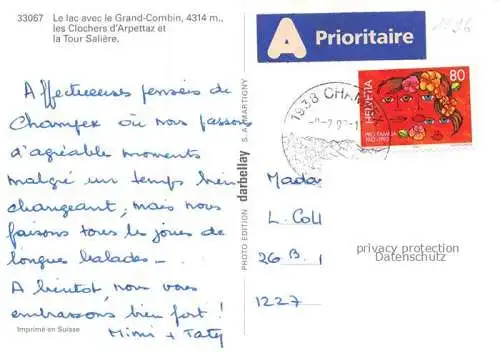 33067 Le lac avec le Grand-Combin, 4314 m.,
les Clochers d'Arpettaz et
la Tour Salière.
Affectueuses pensées de
Champex où nous passons
d'agréable moments
malgré un temps bien
changeant, mais nous
faisons tous les jours de
longues balades -
A bientôt, nous vous
embrassons bien fort !
Mimi + Taty
Imprimé en Suisse
PHOTO EDITION darbellay S.A. MARTIGNY
A Prioritaire
1996
1938 CHAMPEX
HELVETIA 80
PRO FAMILIA
Mada
L. Coll
26 B. 1
1227
privacy protection
Datenschutz